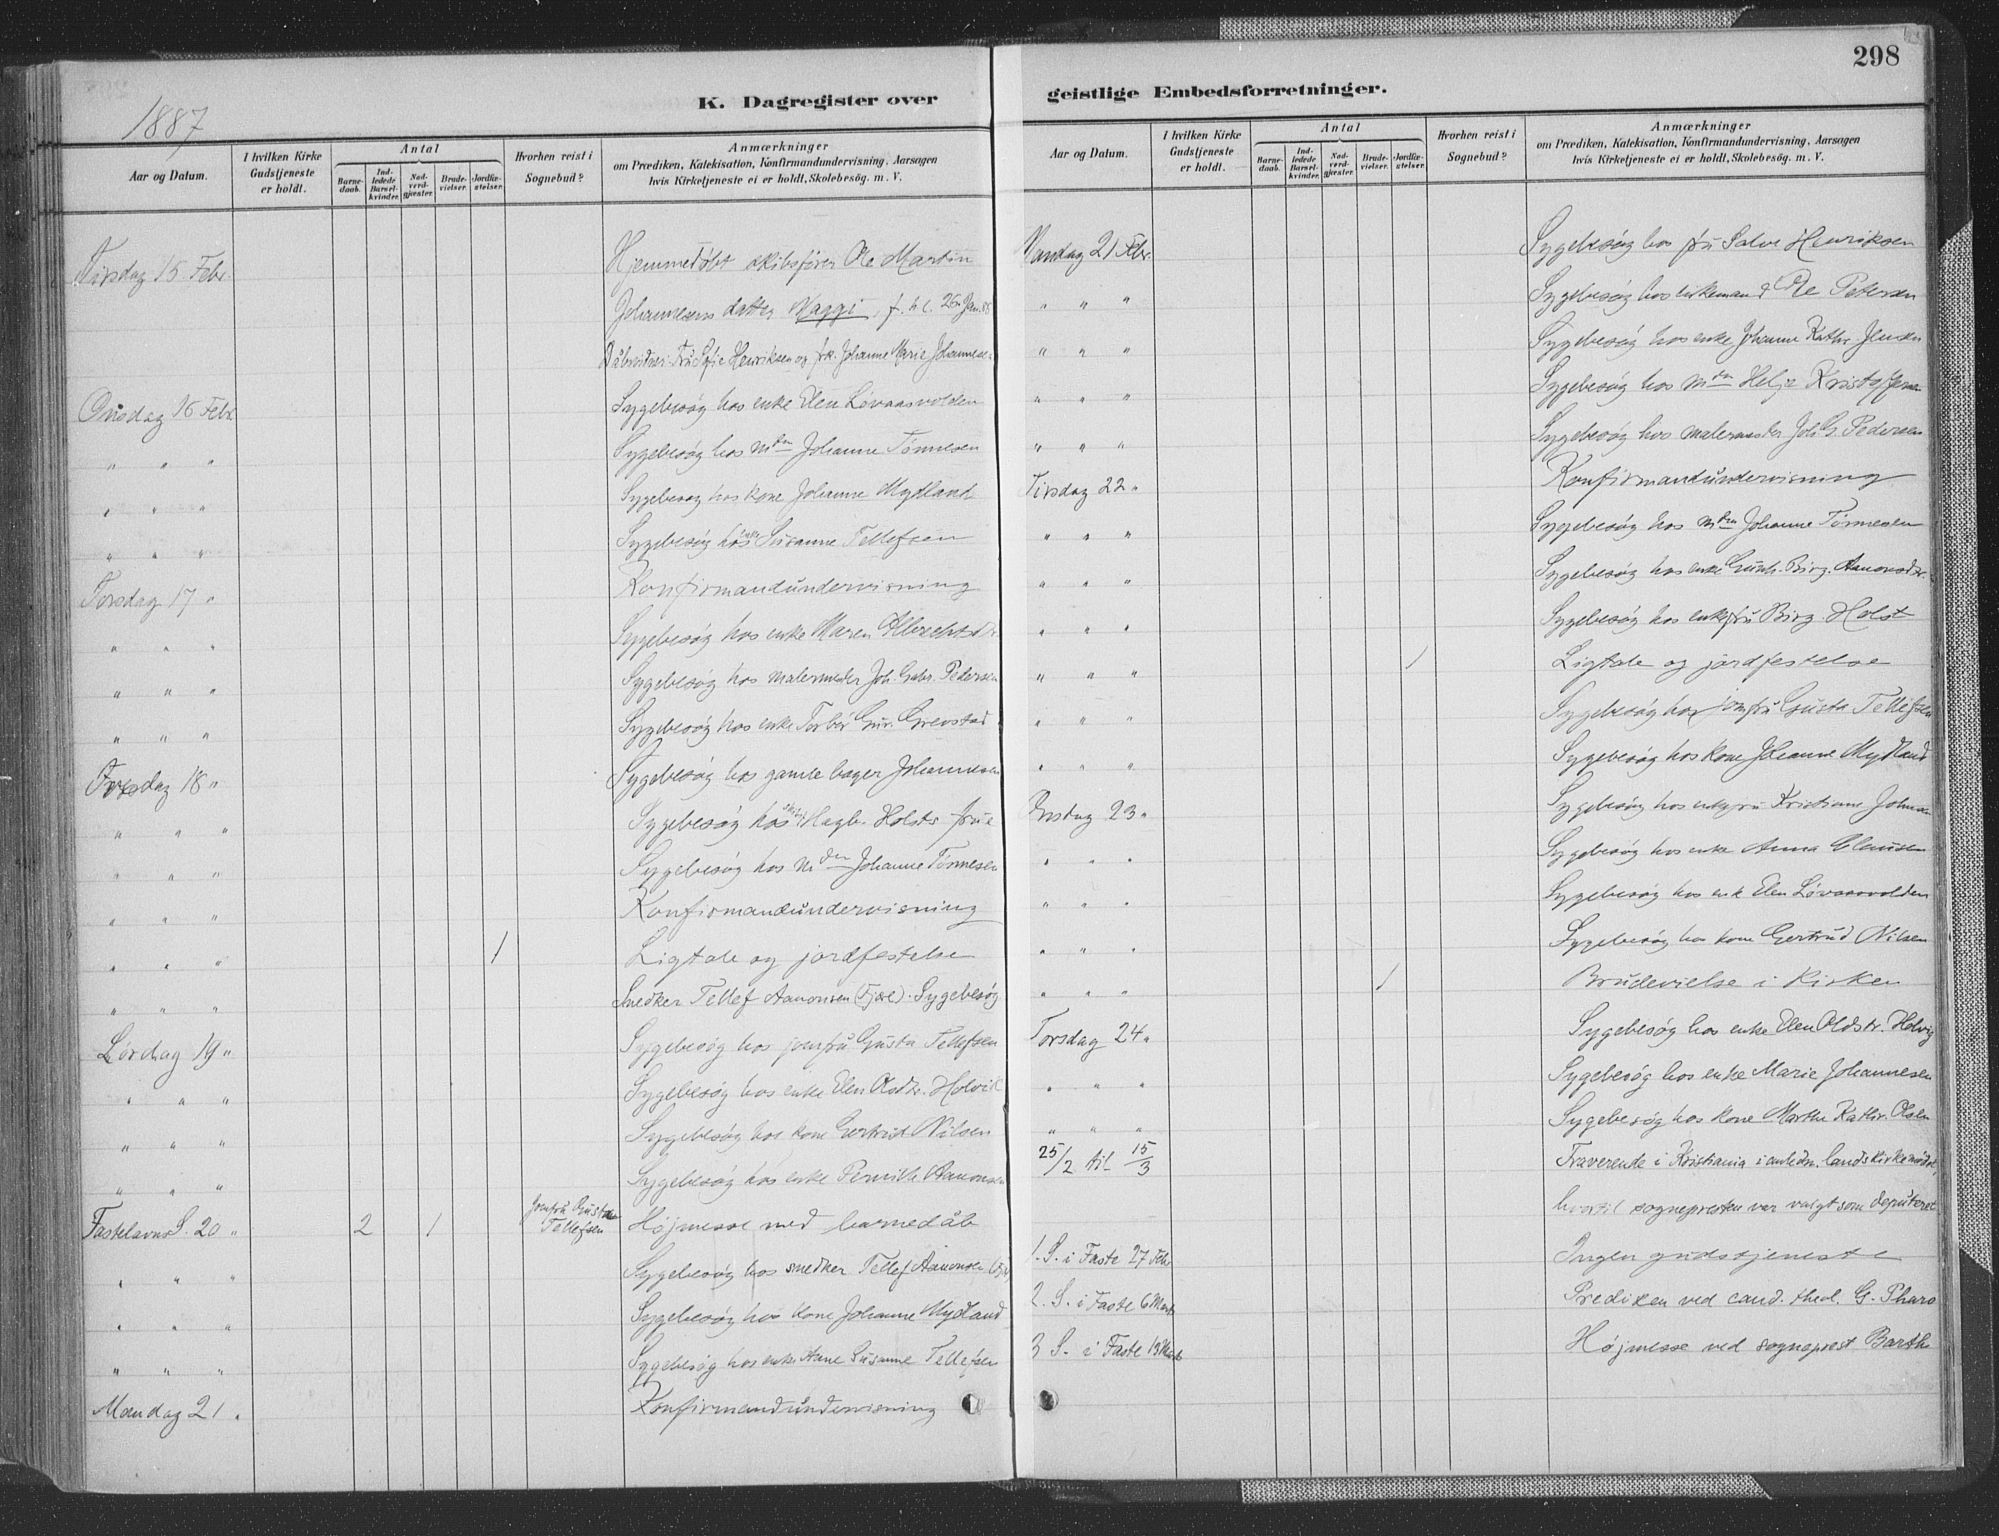 298
K. Dagregister over geistlige Embedsforretninger.
1887
Aar og Datum.
I hvilken Kirke Gudstjeneste er holdt.
Antal
Barnedaab.
Indledede Barselkvinder.
Nadverdgjæster.
Brudevielser.
Jordfæstelser.
Hvorhen reist i Sognebud?
Anmærkninger
om Prædiken, Katekisation, Konfirmandundervisning, Aarsagen
hvis Kirketjeneste ei er holdt, Skolebesøg. m. V.
Tirsdag 15 Febr. Hjemmedøbt skibsfører Ole Martin
Johannesens datter Maggi, f. h. l. 26 Jan. 88
Dåbvidner: Fru Sofie Henriksen og frk. Johanne Marie Johannesen
Onsdag 16 Febr. Sygebesøg hos enke Elen Løvaasvolden
" " " Sygebesøg hos Mdm Johanne Tønnesen
" " " Sygebesøg hos kone Johanne Mydland
" " " Sygebesøg hos enke Susanne Tellefsen
Torsdag 17 " Konfirmandundervisning
" " " Sygebesøg hos enke Maren Albrechtsdr.
" " " Sygebesøg hos malermester Joh. Gabr. Pedersen
" " " Sygebesøg hos enke Torbør Gur. Grevstad
Fredag 18 " Sygebesøg hos gamle bager Johannesen
" " " Sygebesøg hos Hagb. Holsts frue
" " " Sygebesøg hos Mdm Johanne Tønnesen
" " " Konfirmandundervisning
" " " 1 Ligtale og jordfestelse
" " " Snedker Tellef Aanonsen (Fjære). Sygebesøg
Lørdag 19 " Sygebesøg hos jomfru Gusta Tellefsen
" " " Sygebesøg hos enke Elen Olsdtr. Holvik
" " " Sygebesøg hos kone Gertrud Nilsen
" " " Sygebesøg hos enke Pernille Aanonsen
Fastelavns S. 20 " 2 1 Jomfru Gusta Tellefsen Højmesse med barnedåb
" " " Sygebesøg hos snedker Tellef Aanonsen
" " " Sygebesøg hos kone Johanne Mydland
" " " Sygebesøg hos enke Anne Susanne Tellefsen
Mandag 21 " Konfirmandundervisning
Aar og Datum.
I hvilken Kirke Gudstjeneste er holdt.
Antal
Barnedaab.
Indledede Barselkvinder.
Nadverdgjæster.
Brudevielser.
Jordfæstelser.
Hvorhen reist i Sognebud?
Anmærkninger
om Prædiken, Katekisation, Konfirmandundervisning, Aarsagen
hvis Kirketjeneste ei er holdt, Skolebesøg. m. V.
Mandag 21 Febr. Sygebesøg hos fru Salve Henriksen
" " " Sygebesøg hos enkemand Ole Petersen
" " " Sygebesøg hos enke Johanne Kathr. Jensen
" " " Sygebesøg hos Mdm Helje Kristoffersen
" " " Sygebesøg hos malermester Joh. G. Pedersen
Tirsdag 22 " Konfirmandundervisning
" " " Sygebesøg hos Mdm Johanne Tønnesen
" " " Sygebesøg hos enke Gunh. Birg. Aanonsdtr.
" " " Sygebesøg hos enkefru Birg. Holst
" " " 1 Ligtale og jordfestelse
" " " Sygebesøg hos jomfru Gusta Tellefsen
" " " Sygebesøg hos kone Johanne Mydland
Onsdag 23 " Sygebesøg hos enkefru Kristiane Johnsen
" " " Sygebesøg hos enke Anna Clausen
" " " Sygebesøg hos enke Elen Løvaasvolden
" " " Sygebesøg hos kone Gertrud Nilsen
" " " 1 Brudevielse i Kirken
Torsdag 24 " Sygebesøg hos enke Elen Oldstr. Holvig
" " " Sygebesøg hos enke Marie Johannesen
" " " Sygebesøg hos kone Marthe Kathr. Olsen
25/2 til 15/3 Fraværende i Kristiania i anledn. landskirkemødet,
hvortil sognepresten var valgt som deputeret
1. S. i Faste 27 Febr Ingen gudstjeneste
2. S. i Faste 6 Marts Prediken ved cand. theol. G. Pharo
3 S. i Faste 13 Marts Højmesse ved sogneprest Barth